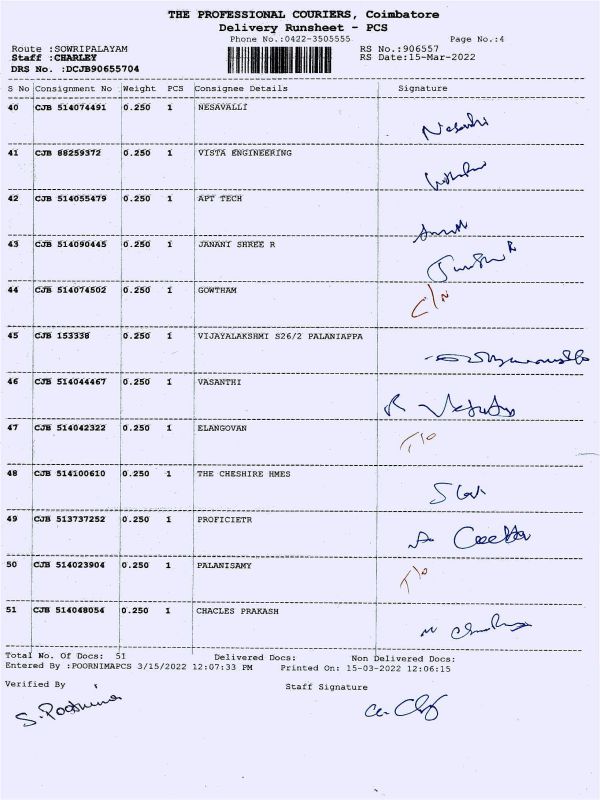 THE PROFESSIONAL COURIERS, Coimbatore
Delivery Runsheet - PCS
Phone No.:0422-3505555 Page No.:4
Route :SOWRIPALAYAM RS No.:906557
Staff :CHARLEY RS Date:15-Mar-2022
DRS No. :DCJB90655704
S No Consignment No Weight PCS Consignee Details Signature
40 CJB 514074491 0.250 1 NESAVALLI
41 CJB 88259372 0.250 1 VISTA ENGINEERING
42 CJB 514055479 0.250 1 APT TECH
43 CJB 514090445 0.250 1 JANANI SHREE R
44 CJB 514074502 0.250 1 GOWTHAM
45 CJB 153338 0.250 1 VIJAYALAKSHMI S26/2 PALANIAPPA
46 CJB 514044467 0.250 1 VASANTHI
47 CJB 514042322 0.250 1 ELANGOVAN
48 CJB 514100610 0.250 1 THE CHESHIRE HMES
49 CJB 513737252 0.250 1 PROFICIETR
50 CJB 514023904 0.250 1 PALANISAMY
51 CJB 514048054 0.250 1 CHACLES PRAKASH
Total No. Of Docs: 51 Delivered Docs: Non Delivered Docs:
Entered By :POORNIMAPCS 3/15/2022 12:07:33 PM Printed On: 15-03-2022 12:06:15
Verified By Staff Signature
S. Poornima